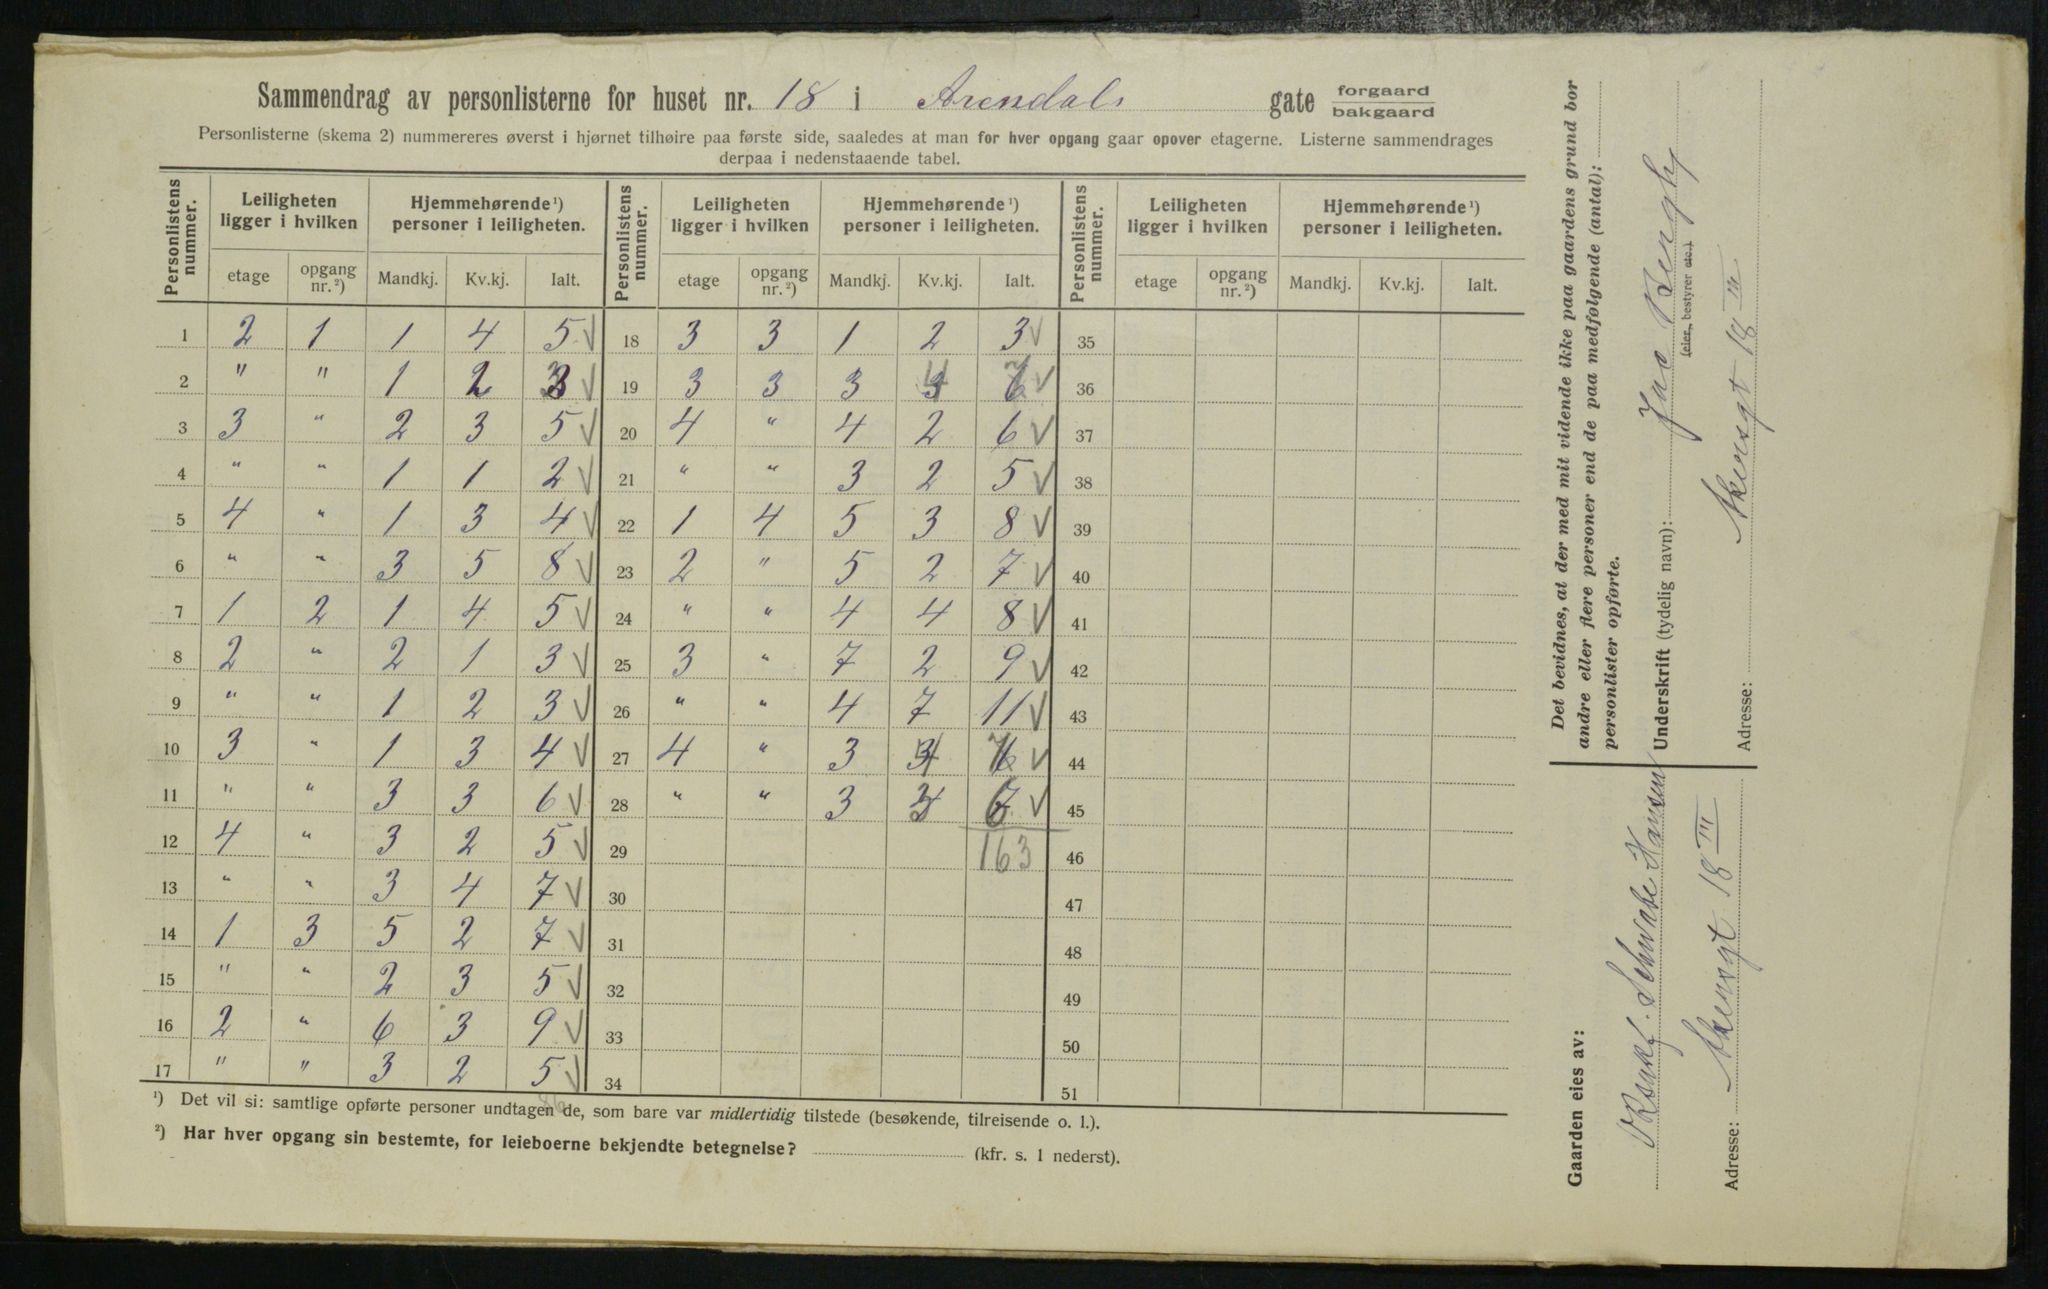 Sammendrag av personlisterne for huset nr. 18 i Arendals gate forgaard
bakgaard
Personlisterne (skema 2) nummereres øverst i hjørnet tilhøire paa første side, saaledes at man for hver opgang gaar opover etagerne. Listerne sammendrages
derpaa i nedenstaaende tabel.
Personlistens nummer. Leiligheten ligger i hvilken Hjemmehørende ¹) personer i leiligheten. Personlistens nummer. Leiligheten ligger i hvilken Hjemmehørende ¹) personer i leiligheten. Personlistens nummer. Leiligheten ligger i hvilken Hjemmehørende ¹) personer i leiligheten.
etage opgang nr. ²) Mandkj. Kv.kj. Ialt. etage opgang nr. ²) Mandkj. Kv.kj. Ialt. etage opgang nr. ²) Mandkj. Kv.kj. Ialt.
1 2 1 1 4 5 √ 18 3 3 1 2 3 √ 35
2 " " 1 2 3 √ 19 3 3 3 4 7 √ 36
3 3 " 2 3 5 √ 20 4 " 4 2 6 √ 37
4 " " 1 1 2 √ 21 " " 3 2 5 √ 38
5 4 " 1 3 4 √ 22 1 4 5 3 8 √ 39
6 " " 3 5 8 √ 23 2 " 5 2 7 √ 40
7 1 2 1 4 5 √ 24 " " 4 4 8 √ 41
8 2 " 2 1 3 √ 25 3 " 7 2 9 √ 42
9 " " 1 2 3 √ 26 " " 4 7 11 √ 43
10 3 " 1 3 4 √ 27 4 " 3 √ 44
11 " " 3 3 6 √ 28 " " 3 √ 45
12 4 " 3 2 5 √ 29 163 46
13 " " 3 4 7 √ 30 47
14 1 3 5 2 7 √ 31 48
15 " " 2 3 5 √ 32 49
16 2 " 6 3 9 √ 33 50
17 " " 3 2 5 √ 34 51
86
¹) Det vil si: samtlige opførte personer undtagen de, som bare var midlertidig tilstede (besøkende, tilreisende o. l.).
²) Har hver opgang sin bestemte, for leieboerne bekjendte betegnelse? (kfr. s. 1 nederst).
Det bevidnes, at der med mit vidende ikke paa gaardens grund bor
andre eller flere personer end de paa medfølgende (antal):
personlister opførte.
Underskrift (tydelig navn):
(eier, bestyrer etc.)
Adresse: Akersgt 18 III
Gaarden eies av:
Schwabe Hansen
Adresse: Akersgt. 18 III